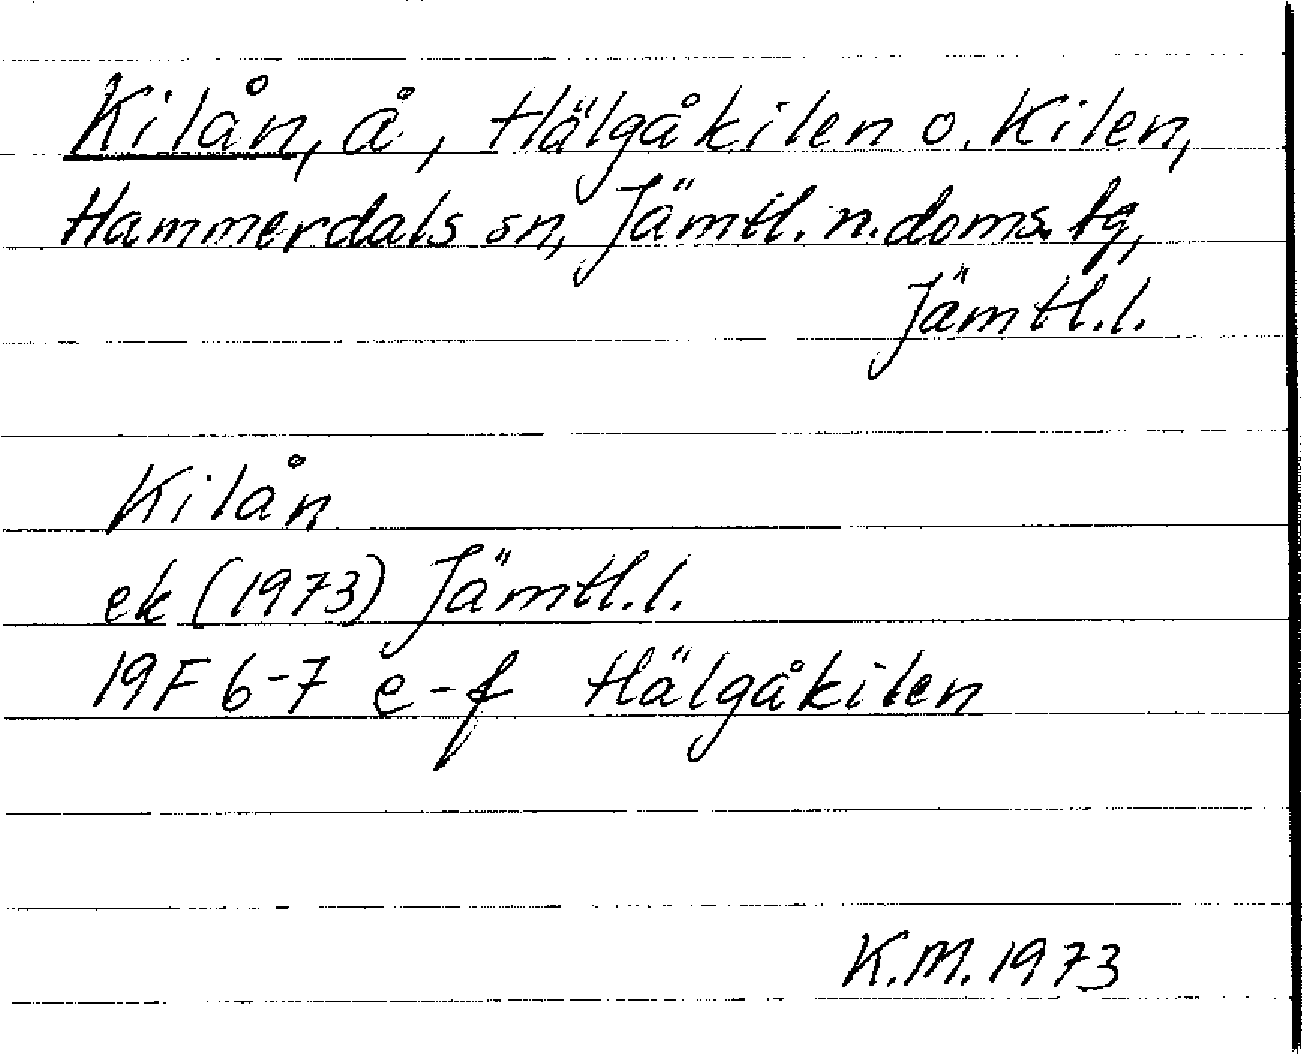 Kilån, å, Hälgåkilen o. Kilen,
Hammerdals sn, Jämtl. n. doms. tg,
Jämtl. l.
Kilån
ek (1973) Jämtl. l.
19F 6-7 e-f Hälgåkilen
K.M. 1973